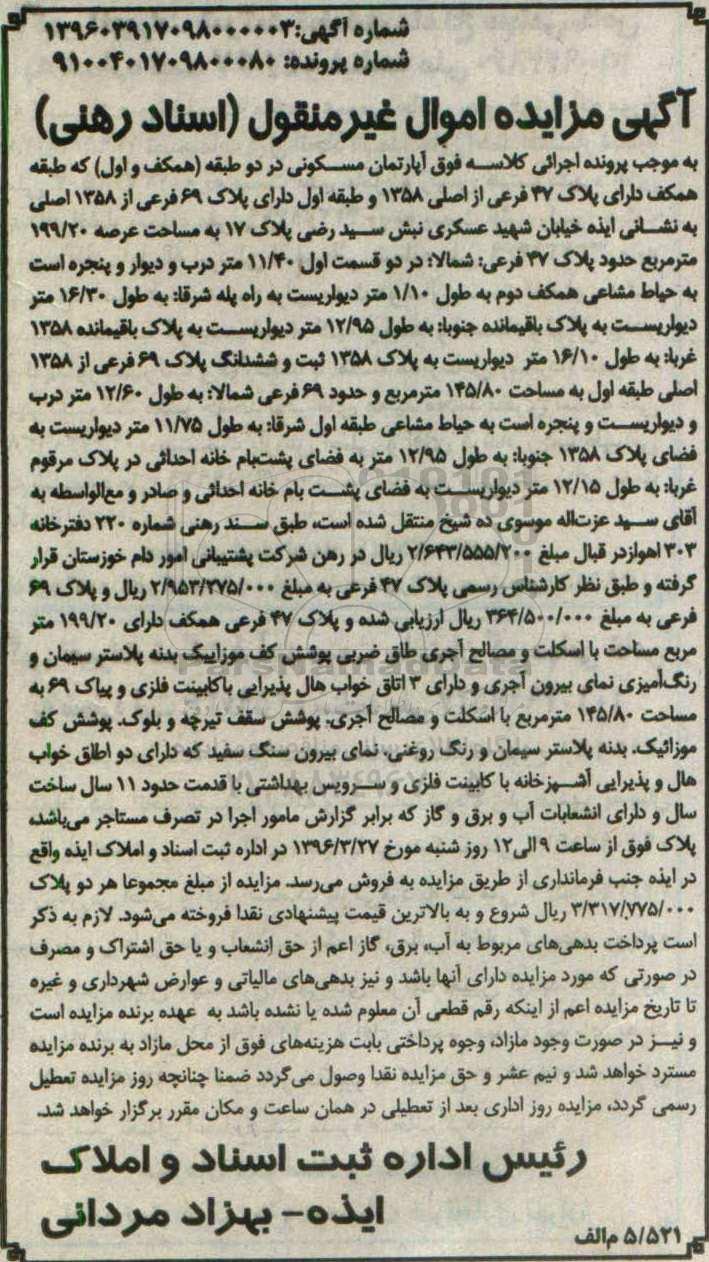 شماره آگهی:۱۳۹۶۰۳۹۱۷۰۹۸۰۰۰۰۰۳
شماره پرونده: ۹۱۰۰۴۰۱۷۰۹۸۰۰۰۸۰
آگهی مزایده اموال غیرمنقول (اسناد رهنی)
به موجب پرونده اجرائی کلاسه فوق آپارتمان مسکونی در دو طبقه (همکف و اول) که طبقه
همکف دارای پلاک ۴۷ فرعی از اصلی ۱۳۵۸ و طبقه اول دارای پلاک ۶۹ فرعی از ۱۳۵۸ اصلی
به نشانی ایذه خیابان شهید عسکری نبش سید رضی پلاک ۱۷ به مساحت عرصه ۱۹۹/۲۰
مترمربع حدود پلاک ۴۷ فرعی: شمالا: در دو قسمت اول ۱۱/۴۰ متر درب و دیوار و پنجره است
به حیاط مشاعی همکف دوم به طول ۱/۱۰ متر دیواریست به راه پله شرقا: به طول ۱۶/۳۰ متر
دیواریست به پلاک باقیمانده جنوبا: به طول ۱۲/۹۵ متر دیواریست به پلاک باقیمانده ۱۳۵۸
غربا: به طول ۱۶/۱۰ متر دیواریست به پلاک ۱۳۵۸ ثبت و ششدانگ پلاک ۶۹ فرعی از ۱۳۵۸
اصلی طبقه اول به مساحت ۱۴۵/۸۰ مترمربع و حدود ۶۹ فرعی شمالا: به طول ۱۲/۶۰ متر درب
و دیواریست و پنجره است به حیاط مشاعی طبقه اول شرقا: به طول ۱۱/۷۵ متر دیواریست به
فضای پلاک ۱۳۵۸ جنوبا: به طول ۱۲/۹۵ متر به فضای پشت‌بام خانه احداثی در پلاک مرقوم
غربا: به طول ۱۲/۱۵ متر دیواریست به فضای پشت بام خانه احداثی و صادر و مع‌الواسطه به
آقای سید عزت‌اله موسوی ده شیخ منتقل شده است، طبق سند رهنی شماره ۲۲۰ دفترخانه
۳۰۳ اهوازدر قبال مبلغ ۲/۶۴۳/۵۵۵/۲۰۰ ریال در رهن شرکت پشتیبانی امور دام خوزستان قرار
گرفته و طبق نظر کارشناس رسمی پلاک ۴۷ فرعی به مبلغ ۲/۹۵۳/۲۷۵/۰۰۰ ریال و پلاک ۶۹
فرعی به مبلغ ۳۶۴/۵۰۰/۰۰۰ ریال ارزیابی شده و پلاک ۴۷ فرعی همکف دارای ۱۹۹/۲۰ متر
مربع مساحت با اسکلت و مصالح آجری طاق ضربی پوشش کف موزاییک بدنه پلاستر سیمان و
رنگ‌آمیزی نمای بیرون آجری و دارای ۳ اتاق خواب هال پذیرایی باکابینت فلزی و پیاک ۶۹ به
مساحت ۱۴۵/۸۰ مترمربع با اسکلت و مصالح آجری. پوشش سقف تیرچه و بلوک. پوشش کف
موزائیک. بدنه پلاستر سیمان و رنگ روغنی. نمای بیرون سنگ سفید که دارای دو اطاق خواب
هال و پذیرایی آشپزخانه با کابینت فلزی و سرویس بهداشتی با قدمت حدود ۱۱ سال ساخت
سال و دارای انشعابات آب و برق و گاز که برابر گزارش مامور اجرا در تصرف مستاجر می‌باشد،
پلاک فوق از ساعت ۹ الی۱۲ روز شنبه مورخ ۱۳۹۶/۳/۲۷ در اداره ثبت اسناد و املاک ایذه واقع
در ایذه جنب فرمانداری از طریق مزایده به فروش می‌رسد. مزایده از مبلغ مجموعا هر دو پلاک
۳/۳۱۷/۷۷۵/۰۰۰ ریال شروع و به بالاترین قیمت پیشنهادی نقدا فروخته می‌شود. لازم به ذکر
است پرداخت بدهی‌های مربوط به آب، برق، گاز اعم از حق انشعاب و یا حق اشتراک و مصرف
در صورتی که مورد مزایده دارای آنها باشد و نیز بدهی‌های مالیاتی و عوارض شهرداری و غیره
تا تاریخ مزایده اعم از اینکه رقم قطعی آن معلوم شده یا نشده باشد به عهده برنده مزایده است
و نیز در صورت وجود مازاد، وجوه پرداختی بابت هزینه‌های فوق از محل مازاد به برنده مزایده
مسترد خواهد شد و نیم عشر و حق مزایده نقدا وصول می‌گردد ضمنا چنانچه روز مزایده تعطیل
رسمی گردد، مزایده روز اداری بعد از تعطیلی در همان ساعت و مکان مقرر برگزار خواهد شد.
رئیس اداره ثبت اسناد و املاک
ایذه- بهزاد مردانی
۵/۵۲۱ م‌الف